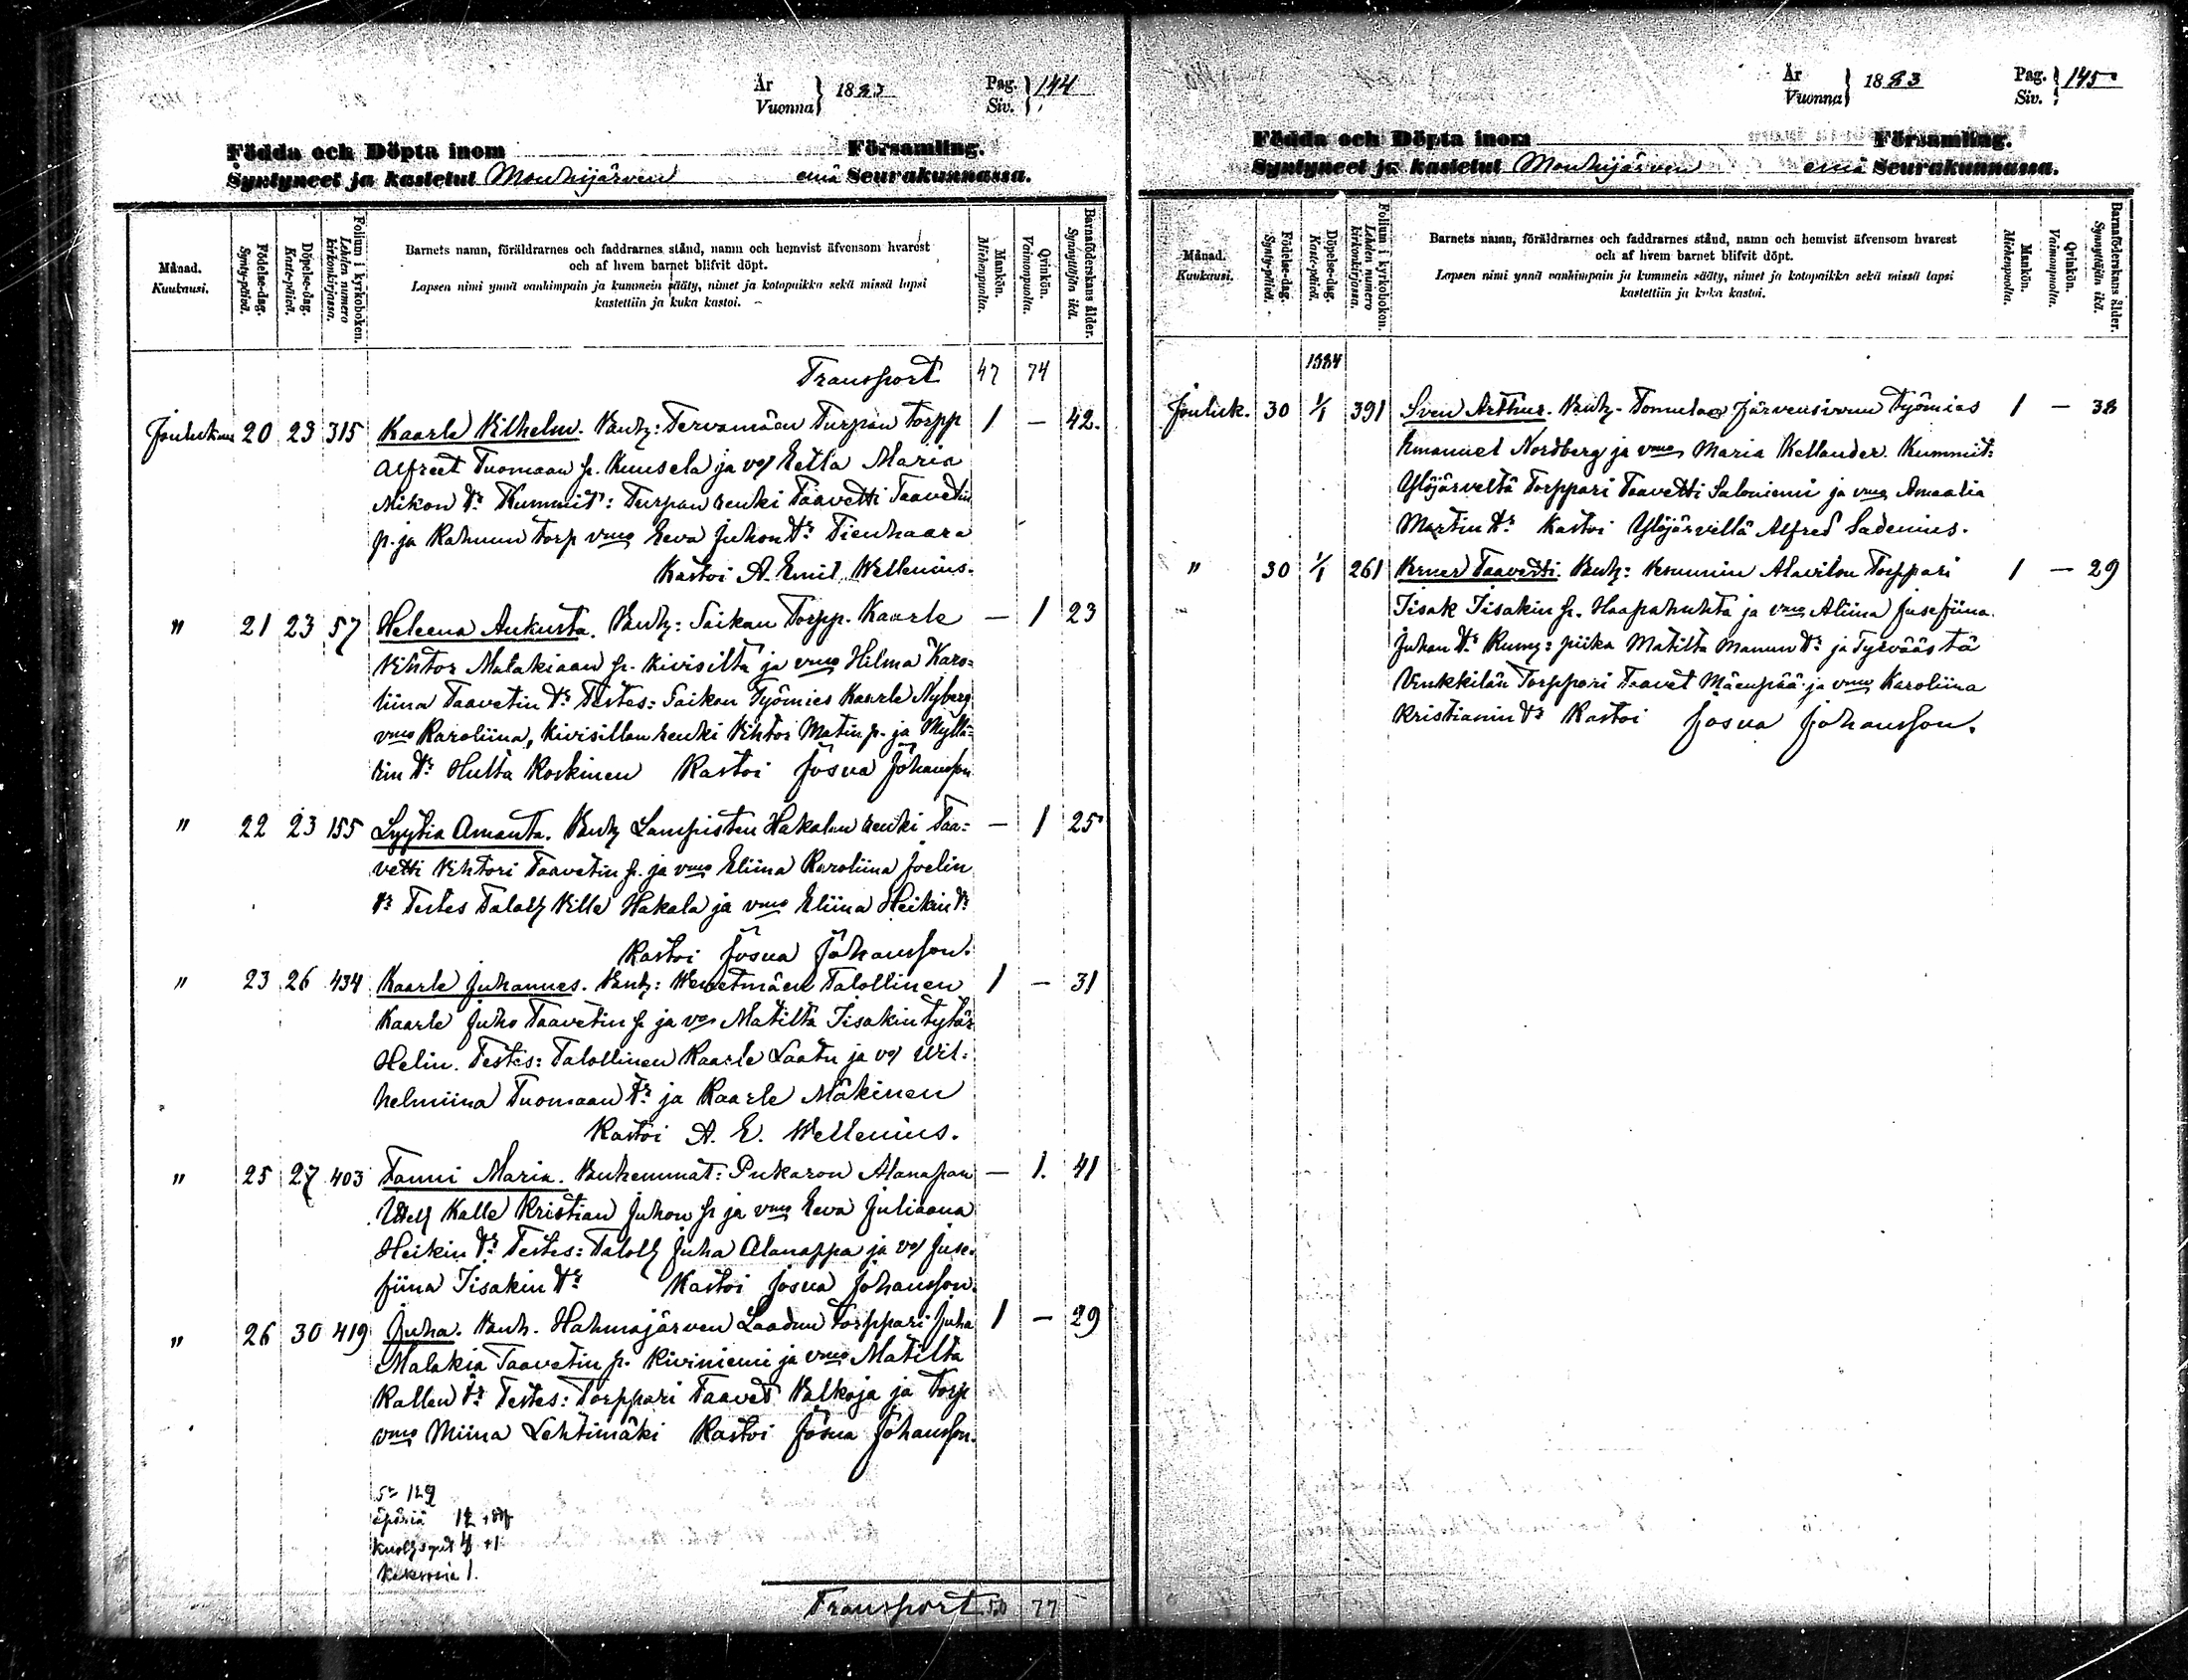 År
Vuonna } 1883
Pag.
Siv. } 144
Födda och Döpta inom Församling.
Syntyneet ja kastetut Mouhijärven emä Seurakunnassa.
Månad.
Kuukausi.
Födelse-dag.
Synty-päivä.
Döpelse-dag.
Kaste-päivä.
Folium i kyrkoboken.
Lehden numero kirkonkirjassa.
Barnets namn, föräldrarnes och faddrarnes stånd, namn och hemvist äfvensom hvarest
och af hvem barnet blifvit döpt.
Lapsen nimi ynnä vanhimpain ja kummein sääty, nimet ja kotopaikka sekä missä lapsi
kastettiin ja kuka kastoi.
Mankön.
Miehenpuolta.
Qvinkön.
Vaimonpuolta.
Barnaföderskans ålder.
Synnyttäjän ikä.
Transport 47 74
Jouluk 20 23 315 Kaarle Vilhelm. Vanh: Tervamäen Turpan torpp 1 — 42.
Alfreet Tuomaan p. Kuusela ja vo/ Eetla Maria
Mikon tr Kummit: Turpan renki Taavetti Taavetin
p. ja Rahmun torp vmo Eeva Juhon tr Tienhaara
Kastoi A. Emil Wellenius.
" 21 23 57 Heleena Aukusta. Vanh: Saikan Torpp. Kaarle — 1 23
Vihtor Malakiaan p. Kivisilta ja vmo Hilma Karo=
liina Taavetin tr Testes: Saikan Työmies Kaarle Nyberg
vmo Karoliina, Kivisillan renki Vihtor Matin p. ja Myllä=
rin tr Hulta Koskinen Kastoi Josua Johansson
" 22 23 155 Lyytia Amanta. Vanh Lampisten Hakalan renki Taa= — 1 25
vetti Vihtori Taavetin p. ja vmo Eliina Karoliina Joelin
tr Testes Talol Ville Hakala ja vmo Eliina Heikin tr
Kastoi Josua Johansson.
" 23 26 434 Kaarle Juhannes. Vanh: Talollinen 1 — 31
Kaarle Juho Taavetin p ja vo Matilta Iisakin tytär
Helin. Testes: Talollinen Kaarle Laatu ja vo/ Wil=
helmiina Tuomaan tr ja Kaarle Mäkinen
Kastoi A. E. Wellenius.
" 25 27 403 Fanni Maria. Vanhemmat: Pukaron Alanapan — 1. 41
Kalle Kristian Juhon p ja vmo Eeva Juliaana
Heikin tr Testes: Talol Juha Alanappa ja vo/ Juse=
fiina Iisakin tr Kastoi Josua Johansson.
" 26 30 419 Juha. Vanh. Hahmajärven Laadun Torppari Juha 1 — 29
Malakia Taavetin p. Kiviniemi ja vmo Matilta
Kallen tr Testes: Torppari Taavet Valkoja ja torp
vmo Miina Lehtimäki Kastoi Josua Johansson.
129
äpäriä 12
1.
Transport 50 77
År
Vuonna } 1883
Pag.
Siv. } 145
Födda och Döpta inom Församling.
Syntyneet ja kastetut Mouhijärven emä Seurakunnassa.
Månad.
Kuukausi.
Födelse-dag.
Synty-päivä.
Döpelse-dag.
Kaste-päivä.
Folium i kyrkoboken.
Lehden numero kirkonkirjassa.
Barnets namn, föräldrarnes och faddrarnes stånd, namn och hemvist äfvensom hvarest
och af hvem barnet blifvit döpt.
Lapsen nimi ynnä vanhimpain ja kummein sääty, nimet ja kotopaikka sekä missä lapsi
kastettiin ja kuka kastoi.
Mankön.
Miehenpuolta.
Qvinkön.
Vaimonpuolta.
Barnaföderskans ålder.
Synnyttäjän ikä.
1884
Jouluk. 30 1/1 391 Sven Arthur. Vanh. Järvensivun Työmies 1 — 38
Emanuel Nordberg ja vmo Maria Kellander. Kummit:
Ylöjärveltä Torppari Taavetti Saloniemi ja vmo Amaalia
Martin tr Kastoi Ylöjärvellä Alfred Sadenius.
" 30 1/1 261 Verner Taavetti. Vanh: Alavilon Torppari 1 — 29
Iisak Iisakin p. Haapahuhta ja vmo Aliina Jusefiina
Juhan tr Kumz: piika Matilta Manun tr ja Tyrväästä
Vinkkilän Torppari Taavet Mäenpää ja vmo Karoliina
Kristianin tr Kastoi Josua Johansson.